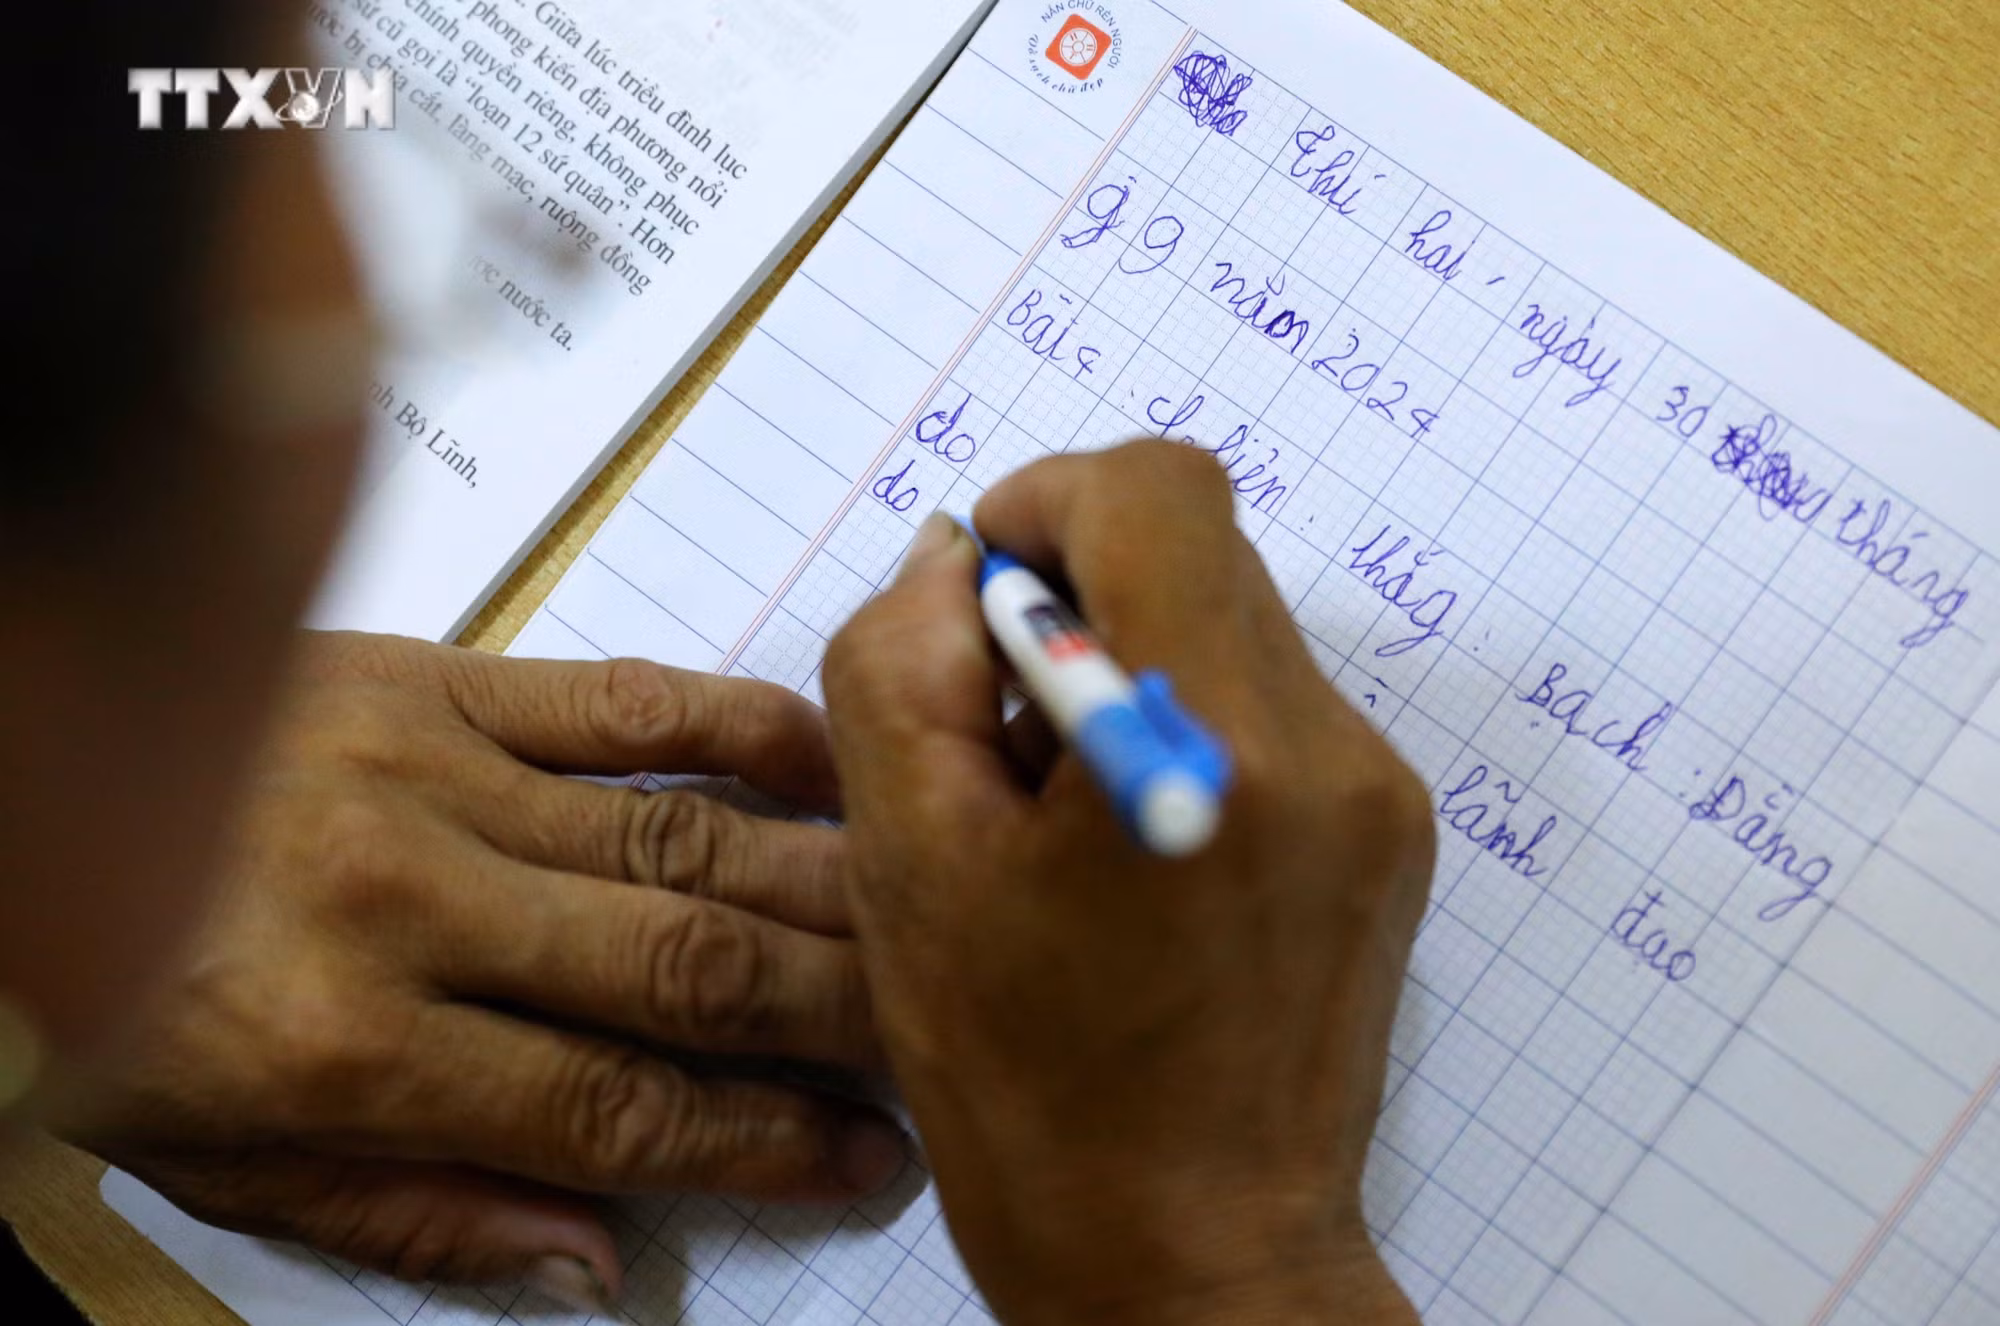 TTXVN
. Giữa lúc triều đình lục
phong kiến địa phương nổi
chính quyền riêng, không phục
sứ cũ gọi là “loạn 12 sứ quân”. Hơn
bị chia cắt, làng mạc, ruộng đồng
nước ta.
Bộ Lĩnh,
NẮN CHỮ RÈN NGƯỜI
Vở sạch chữ đẹp
Thứ hai, ngày 30 tháng
9 năm 2024
Bài 4 : thắg : Bạch : Đằng
do lãnh đạo
do